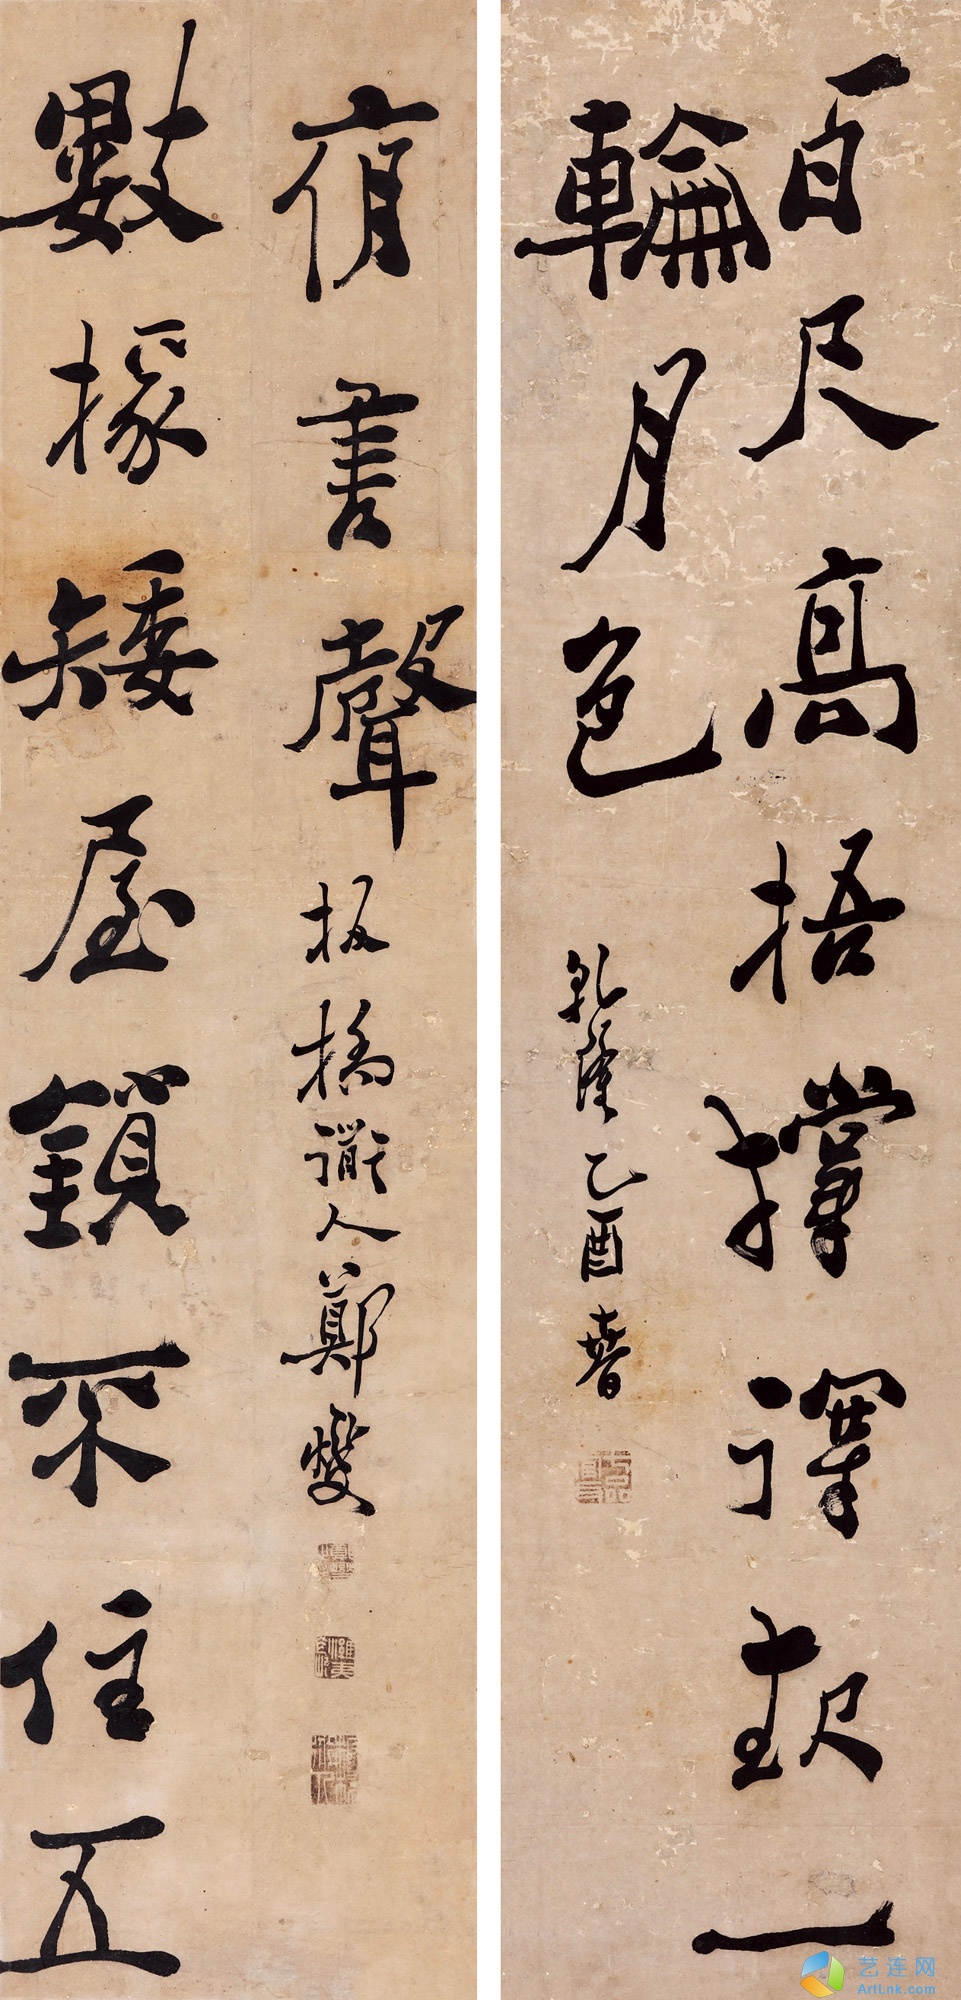 百尺高梧撐得起一
輪月色
乾隆乙酉春
數椽矮屋鎖不住五
夜書聲
板橋道人鄭燮
艺连网
ArtLnk.com